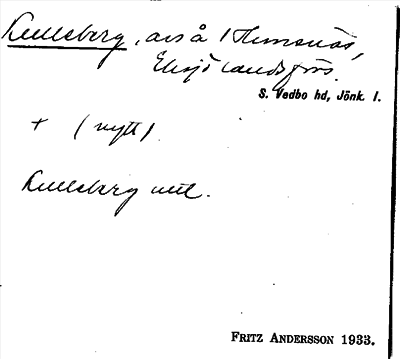 Kullsberg, avs å Hunsnäs,
Eksjö landsförs.
S. Vedbo hd, Jönk. l.
+ (nytt)
Kullsberg
FRITZ ANDERSSON 1933.